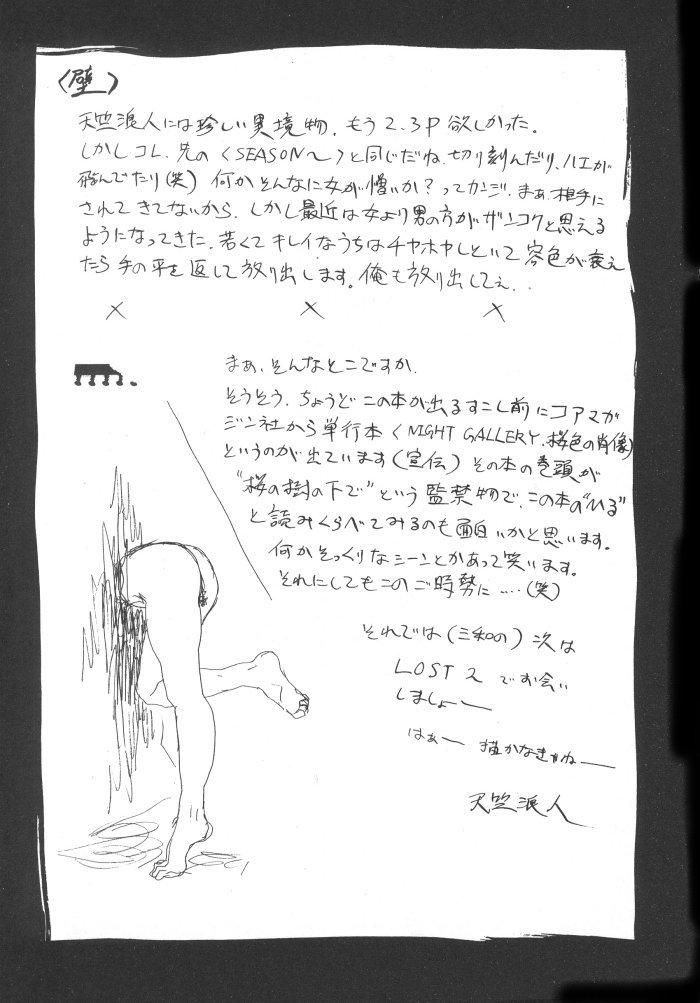 〈壁〉
天竺浪人には珍しい異境物、もう2、3P欲しかった。
しかしコレ、先の〈SEASON〜〉と同じだね、切り刻んだり、ハエが
飛んでたり(笑) 何かそんなに女が憎いか？ってカンジ。まぁ、相手に
されてきてないから、しかし最近は女より男の方がザンコクと思える
ようになってきた、若くてキレイなうちはチヤホヤしといて容色が衰え
たら手の平を返して放り出します。俺も放り出してぇ..
× × ×
まぁ、そんなとこですか、
そうそう、ちょうどこの本が出るすこし前にコアマガ
ジン社から単行本〈NIGHT GALLERY、桜色の肖像〉
というのが出ています(宣伝) その本の巻頭が
"桜の樹の下で"という監禁物で、この本の"いる"
と読みくらべてみるのも面白いかと思います。
何かそっくりなシーンとかあって笑います。
それにしてもこのご時勢に....(笑)
それでは(三和の)次は
LOST 2 でお会い
しましょー
はぁー 描かなきゃねー
天竺浪人